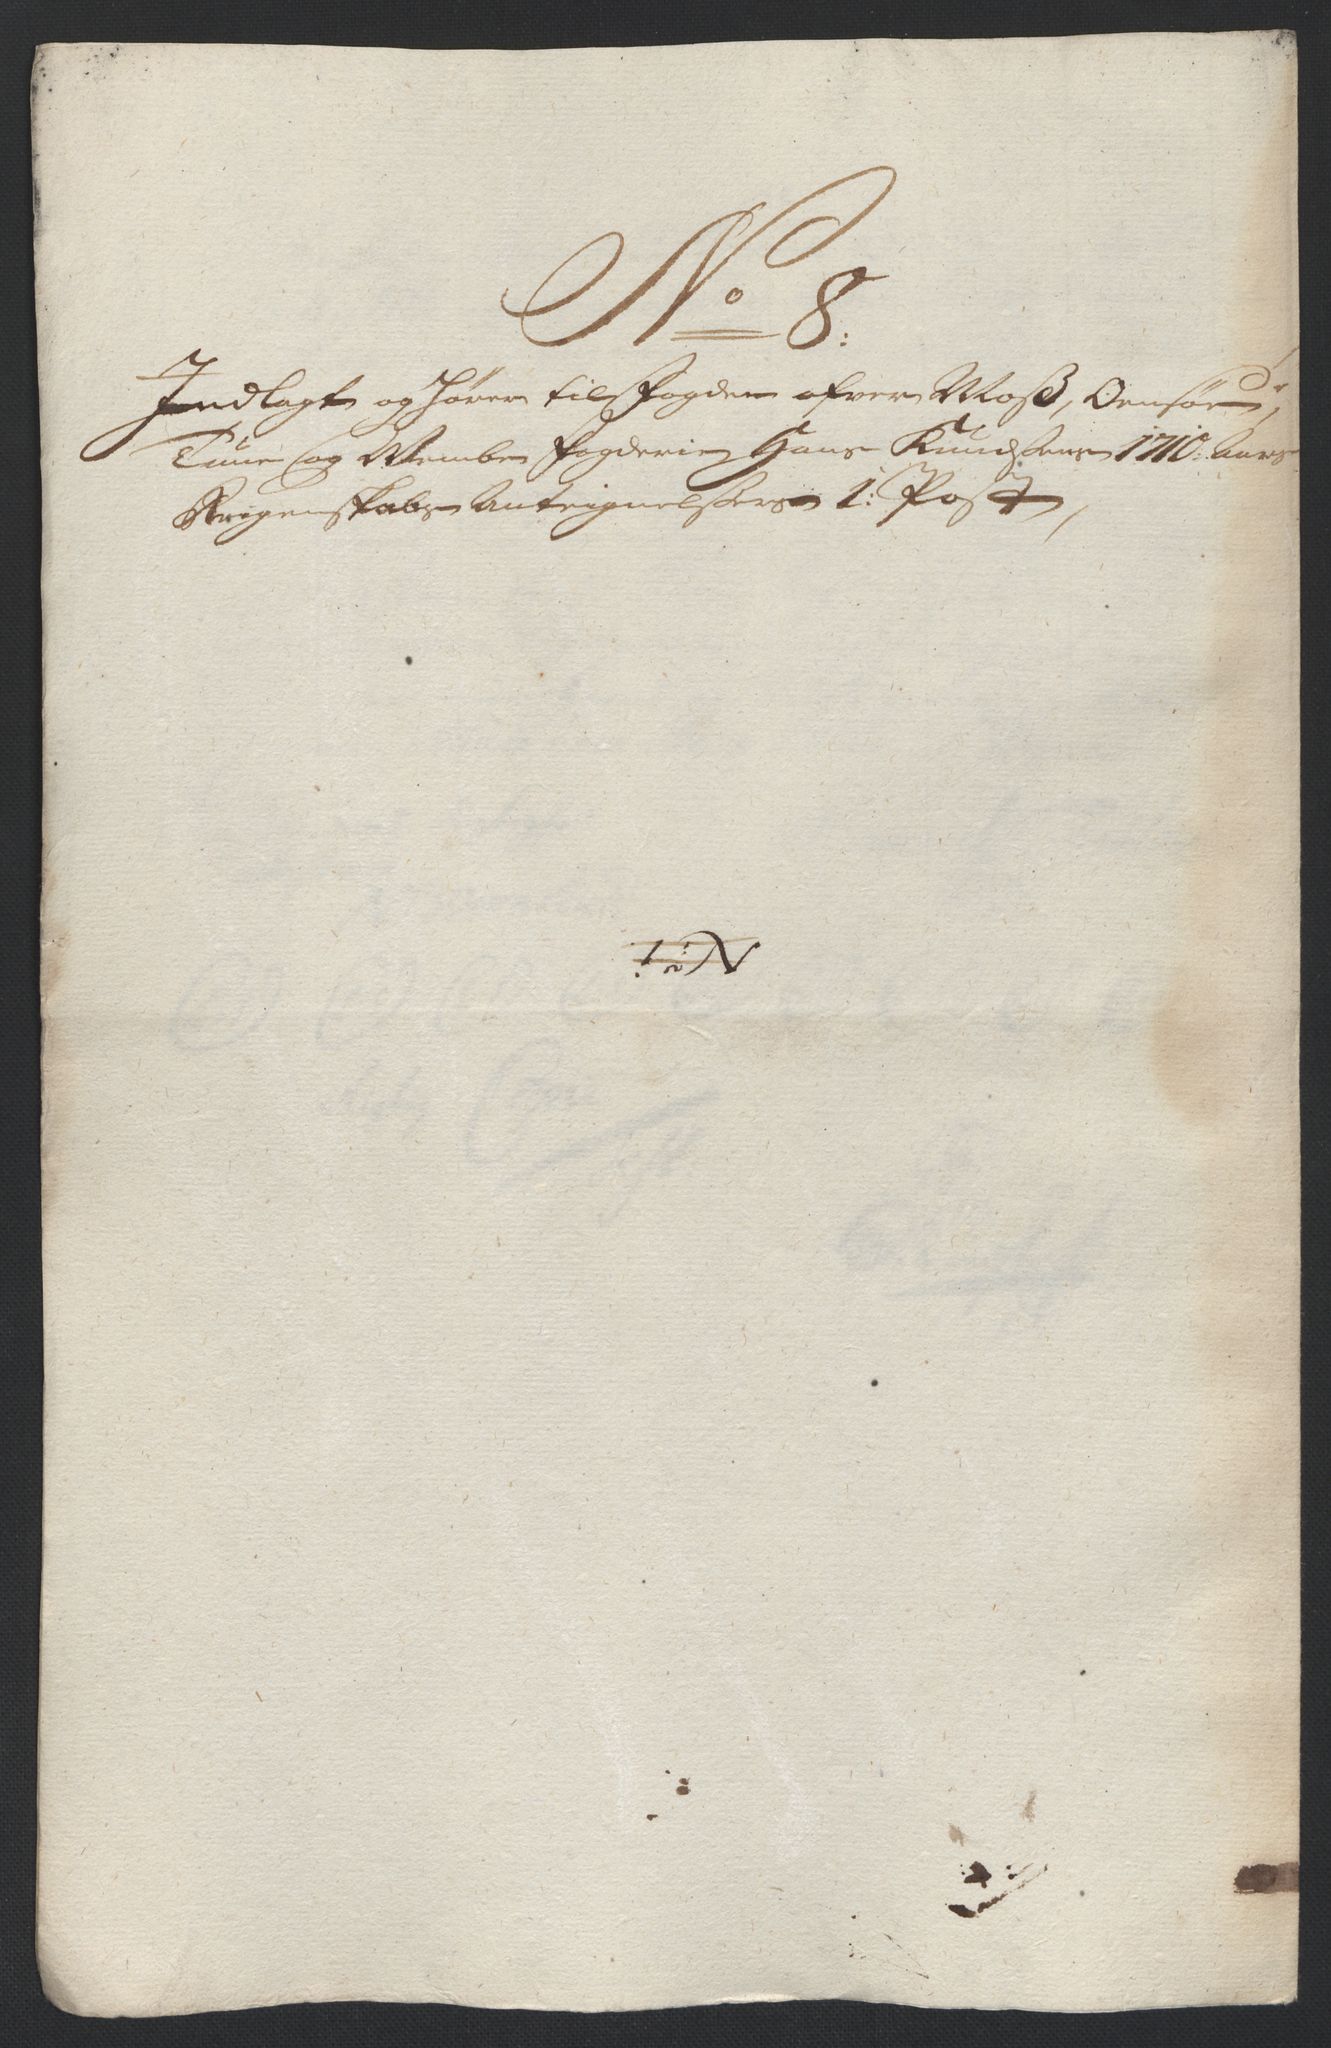 No 8:
Indlagt og hører til Fogden ofver Moss, Onsøe,
Tune og Wembe Fogderie Hans Knudsens 1710: Aars
Regenskabs Antegnelsers 1: Post,
No 1: